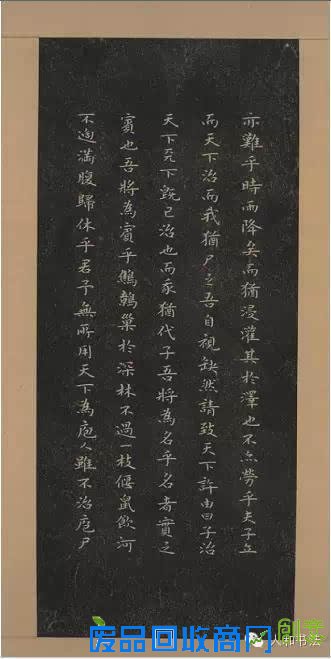 亦難乎時雨降矣而猶浸灌其於澤也不亦勞乎夫子立
而天下治而我猶尸之吾自視缺然請致天下許由曰子治
天下天下既已治也而我猶代子吾將為名乎名者實之
賓也吾將為賓乎鷦鷯巢於深林不過一枝偃鼠飲河
不過滿腹歸休乎君子無所用天下為庖人雖不治庖尸
人和书法
创意
废品回收商网